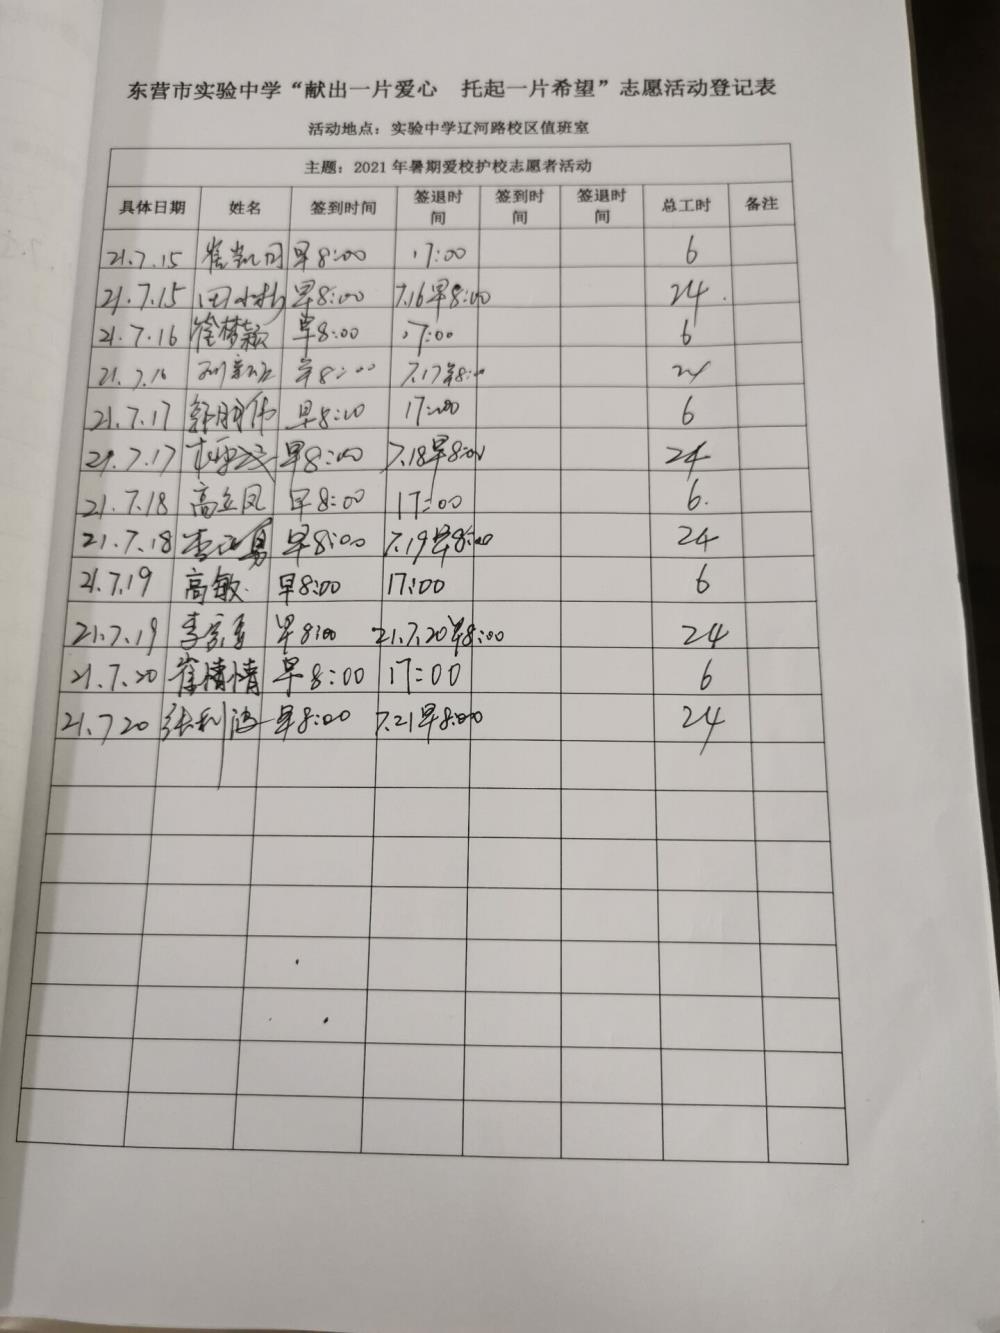 东营市实验中学“献出一片爱心 托起一片希望”志愿活动登记表
活动地点：实验中学辽河路校区值班室
主题：2021年暑期爱校护校志愿者活动
具体日期 姓名 签到时间 签退时间 签到时间 签退时间 总工时 备注
21.7.15 早8:00 17:00 6
21.7.15 早8:00 7.16早8:00 24
21.7.16 崔梦颖 早8:00 17:00 6
21.7.16 早8:00 7.17早8:00 24
21.7.17 早8:00 17:00 6
21.7.17 早8:00 7.18早8:00 24
21.7.18 高立凤 早8:00 17:00 6.
21.7.18 早8:00 7.19早8:00 24
21.7.19 高敏 早8:00 17:00 6
21.7.19 早8:00 21.7.20早8:00 24
21.7.20 崔倩倩 早8:00 17:00 6
21.7.20 早8:00 7.21早8:00 24